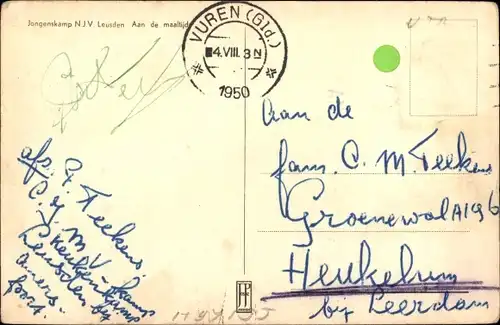 Jongenskamp N.J.V. Leusden Aan de maaltijd
VUREN (Gld.)
4.VIII.3N
1950
Aan de
fam. C. M. Teekens
Groenewal A196
Heukelum
bij Leerdam
afz. G. Teekens.
C.J.M.V. kamp
Leusden bij
Amers-
foort.